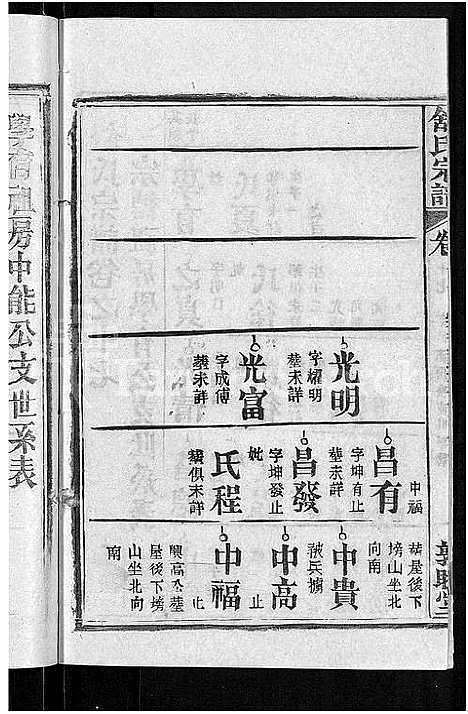 舒氏宗譜
卷
光明
字耀明
塟未詳
光富
字成傅
塟未詳
昌有
字坤有止
塟未詳
昌發
字坤發止
妣
氏程
塟俱未詳
中福
塟屋後下
塝山坐北
向南
中貴
被兵擄
止
中高
止
中福
止
興高仝塟
屋後下塝
山坐北向
南
學有祖房中能公支世系表